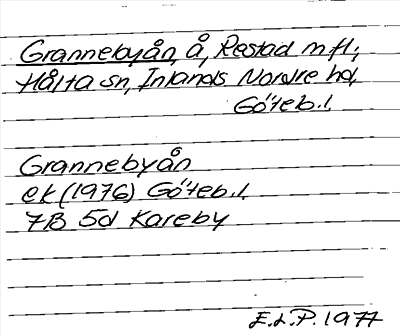 Grannebyån, å, Restad m fl;
Hålta sn, Inlands Nordre hd,
Göteb. l.
Grannebyån
ek (1976) Göteb. l.
7B 5d Kareby
E.L.P. 1977